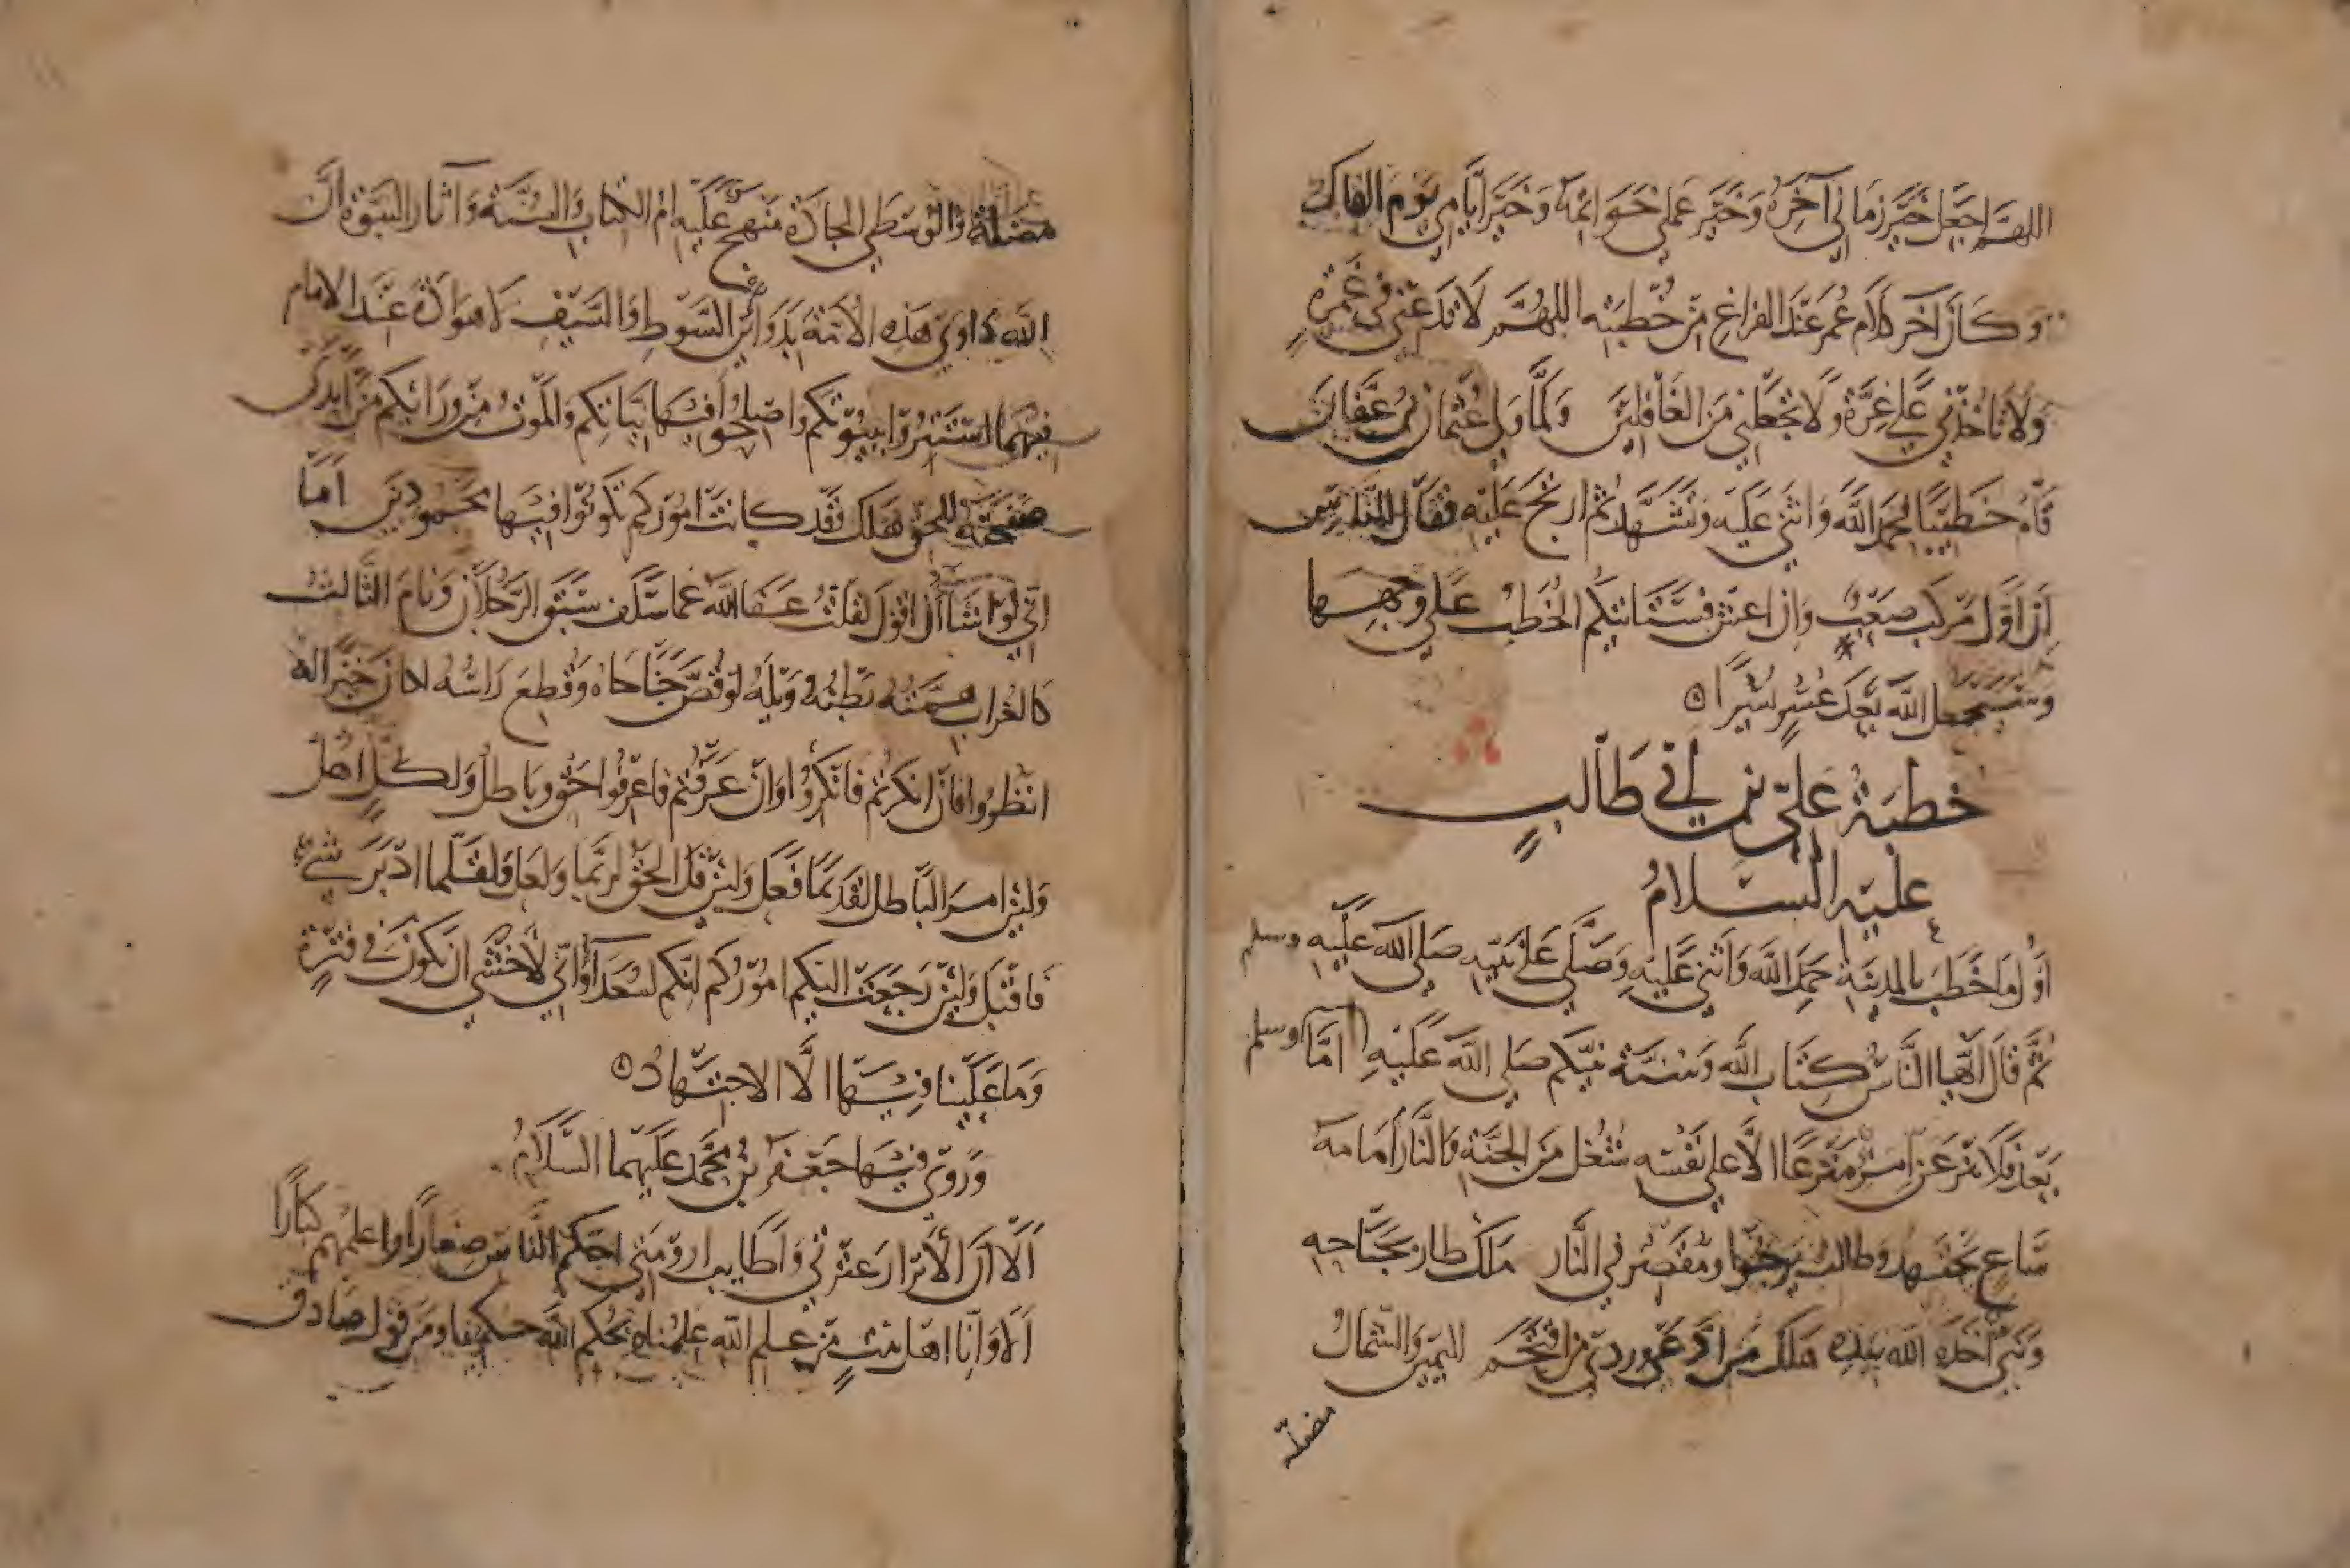 اللهم اجعل خير زماني آخره وخير عملي خواتمه وخير ايامي يوم القاك
وكان آخر كلام عمر عند الفراغ من خطبته اللهم لا تدعني في غمرة
ولا تاخذني على غرة ولا تجعلني من الغافلين ولما ولي عثمان بن عفان
قام خطيبا فحمد الله واثنى عليه وتشهد ثم ارتج عليه فقال ايها الناس
إن اول مركب صعب وان اعش فستاتيكم الخطب على وجهها
وسيجعل الله بعد عسر يسرا
خطبة علي بن ابي طالب
عليه السلام
اول ما خطب بالمدينة حمد الله واثنى عليه وصلى على نبيه صلى الله عليه وسلم
ثم قال ايها الناس كتاب الله وسنة نبيكم صلى الله عليه وسلم اما
بعد فلا يرعين مرع الا على نفسه شغل من الجنة والنار امامه
ساع مجتهد وطالب يرجوا ومقصر في النار ملك طار بجناحيه
ونبي اخذ الله بيديه هلك من ادعى وردي من اقتحم اليمين والشمال
مضلة
مضلة والوسطى الجادة منهج عليه ام الكتاب والسنة وآثار النبوة ان
الله داوى هذه الامة بدوائين السوط والسيف لا هوادة عند الامام
فيهما استتروا ببيوتكم واصلحوا فيها بينكم والموت من ورائكم من ابدى
صفحته للحق هلك قد كانت امور لم تكونوا فيها بمحمودين اما
اني لو اشا ان اقول لقلت عفا الله عما سلف سبق الرجلان ونام الثالث
كالغراب همته بطنه ويله لو قص جناحاه وقطع راسه لكان خيرا له
انظروا فان انكرتم فانكروا وان عرفتم فاعرفوا حق وباطل ولكل اهل
ولئن امر الباطل لقديما فعل ولئن قل الحق لربما ولعل ولقلما ادبر شيء
فاقبل ولئن رجعت اليكم اموركم انكم لسعدآ واني لاخشى ان تكون في فترة
وما علينا فيها الا الاجتهاد
وروى فيها جعفر بن محمد عليهما السلام
ألا ان الابرار عترتي واطايب ارومتي احكم الناس صغارا واعلمهم كبارا
ألا وانا اهل بيت من علم الله علمنا وبحكم الله حكمنا ومن قول صادق